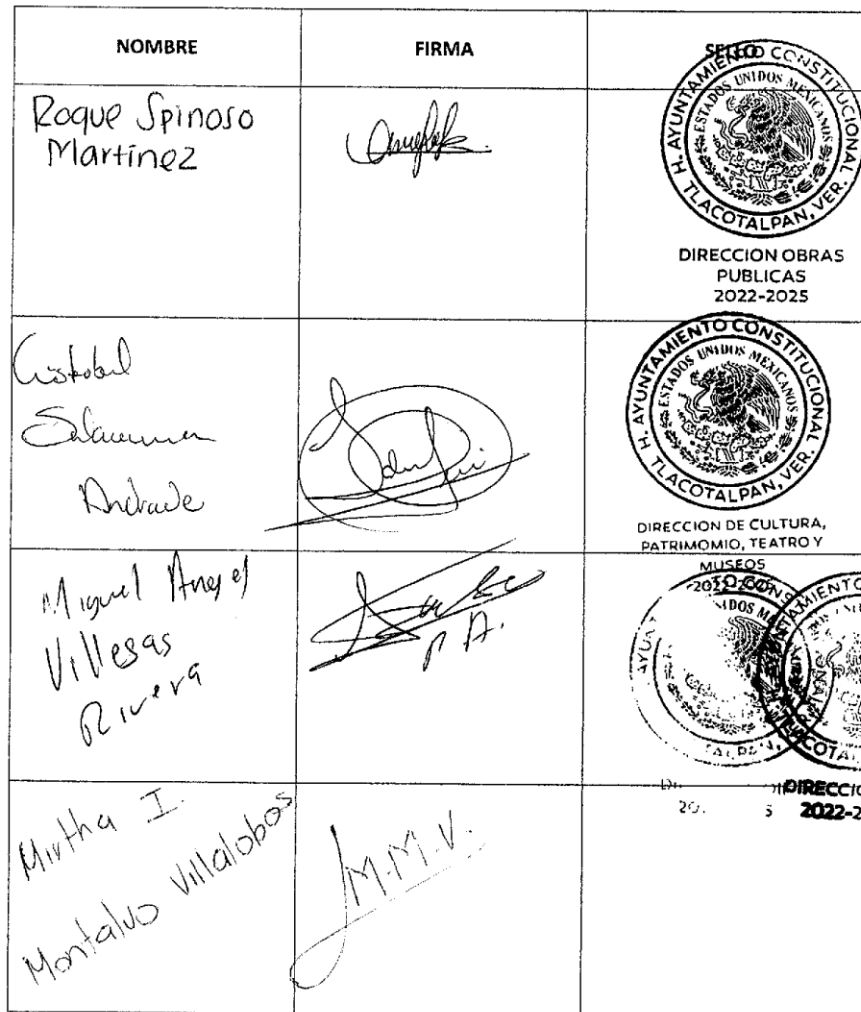 NOMBRE
FIRMA
SELLO
Roque Spinoso
Martínez
H. AYUNTAMIENTO CONSTITUCIONAL
ESTADOS UNIDOS MEXICANOS
TLACOTALPAN, VER.
DIRECCION OBRAS
PUBLICAS
2022-2025
Cristobal
Salaman
Andrade
H. AYUNTAMIENTO CONSTITUCIONAL
ESTADOS UNIDOS MEXICANOS
TLACOTALPAN, VER.
DIRECCION DE CULTURA,
PATRIMOMIO, TEATRO Y
MUSEOS
Miguel Angel
Villegas
Rivera
P.A.
DIRECCIO
2022-2
Mirtha I.
Montalvo Villalobos
M.M.V.